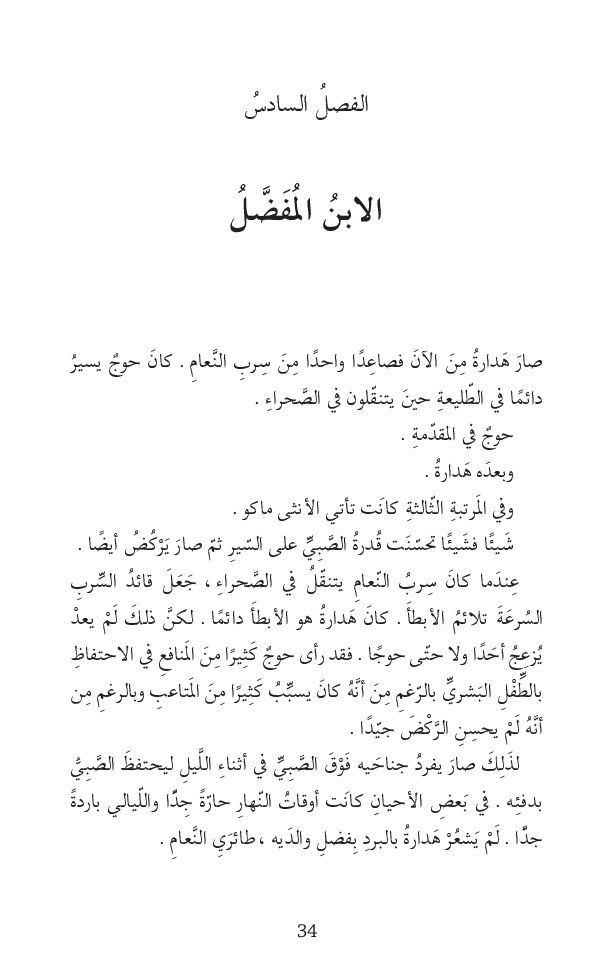 الفصلُ السادسُ
الابنُ المُفَضَّلُ
صارَ هَدارةُ مِنَ الآنَ فصاعِدًا واحدًا مِنَ سِربِ النَّعامِ . كانَ حوجٌ يسيرُ
دائمًا في الطّليعةِ حينَ يتنقّلون في الصَّحراءِ .
حوجٌ في المقدّمةِ .
وبعدَه هَدارةُ .
وفي المَرتبةِ الثّالثةِ كانَت تأتي الأنثى ماكو .
شَيئًا فشَيئًا تحسّنَت قُدرةُ الصَّبِيِّ على السّيرِ ثمّ صارَ يَرْكُضُ أيضًا .
عِندَما كانَ سِربُ النّعامِ يتنقّلُ في الصَّحراءِ ، جَعَلَ قائدُ السِّربِ
السُرعَةَ تلائمُ الأبطأَ . كانَ هَدارةُ هو الأبطأَ دائمًا . لكنَّ ذلكَ لَمْ يعدْ
يُزعِجُ أحَدًا ولا حتّى حوجًا . فقد رأى حوجٌ كَثِيرًا مِنَ المَنافعِ في الاحتفاظِ
بالطِّفْلِ البَشريِّ بالرّغمِ مِنَ أنَّهُ كانَ يسبِّبُ كَثِيرًا مِنَ المَتاعبِ وبالرغمِ مِن
أنَّهُ لَمْ يحسِنِ الرَّكْضَ جيّدًا .
لذَلِكَ صارَ يفردُ جناحَيه فَوْقَ الصَّبِيِّ في أثناءِ اللَّيلِ ليحتفظَ الصَّبِيُّ
بدفئِه . في بَعضِ الأحيانِ كانَت أوقاتُ النّهارِ حارّةً جِدًّا واللّيالي باردةً
جدًّا . لَمْ يَشعُرْ هَدارةُ بالبردِ بِفضلِ والدَيه ، طائرَيِ النَّعامِ .
34